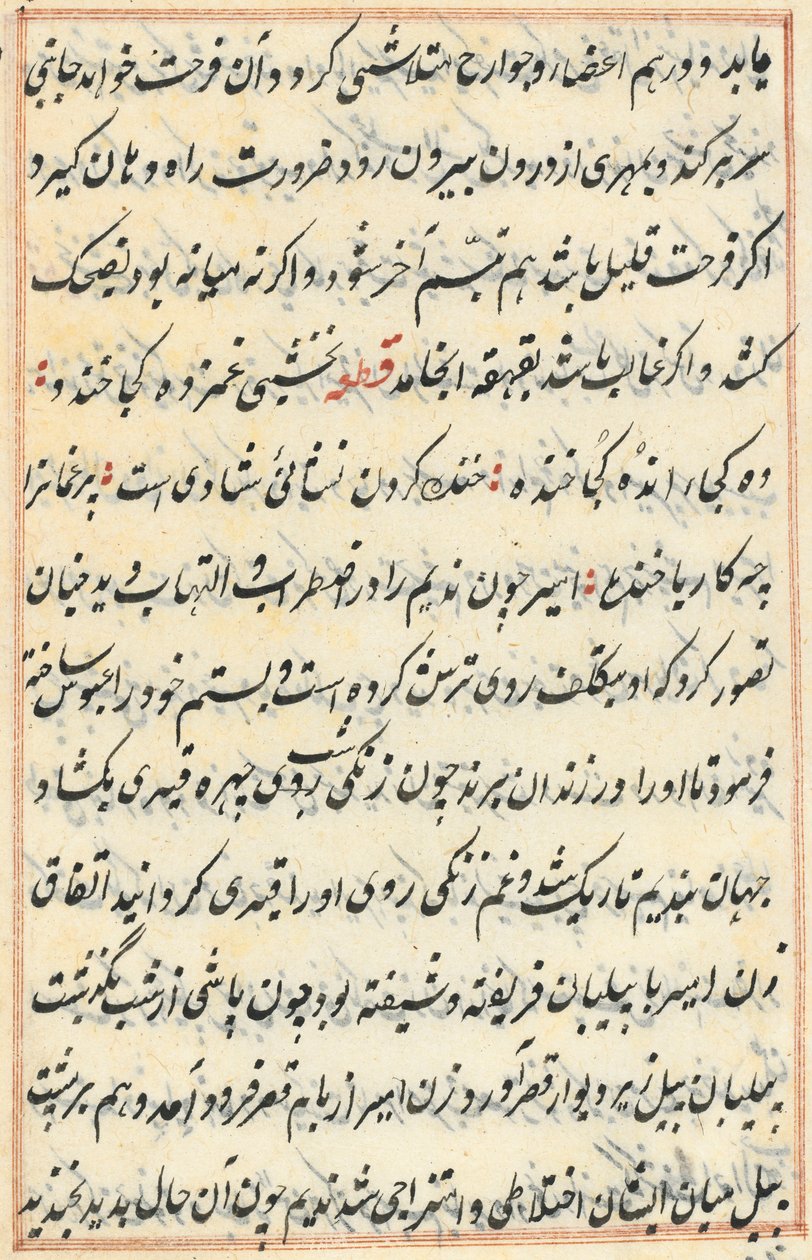 یابد و در هم اعضاء و جوارح متلاشی کردد و آن فرحت خواهد جانبی
سر بر کند و بهری از درون بیرون رود ضرورت راه دهان کیرد
اکر فرحت قلیل باشد هم تبسّم آخر شود و اکر نه میانه بود بضحک
کشد و اکر غالب باشد بقهقه انجامد قطعه نخشبی غمزده کجا خندد :
وه کجاء اندُه کُجا خنده : خنده کردن نشانئ شادی است : پر غمانرا
چه کار با خندها : امیر چون ندیم را در اضطراب و التهاب دید چنان
تصور کرد که او بتکلف روی ترش کرده است و بستم خود را عبوس ساخته
فرمود تا او را در زندان برند چون زنکی شب روی چهره قیری بکشاد
جهان بندیم تاریک شد و غم زنکی روی او را قیری کردانید اتفاق
زن امیر با پیلبان فریفته و شیفته بود چون پاشی از شب بگذشت
پیلبان پیل زیر دیوار قصر آورد و زن امیر از بام قصر فرود آمد و هم بر پشت
پیل میان ایشان اختلاطی و امتزاجی شد ندیم چون آن حال بدید بخندید